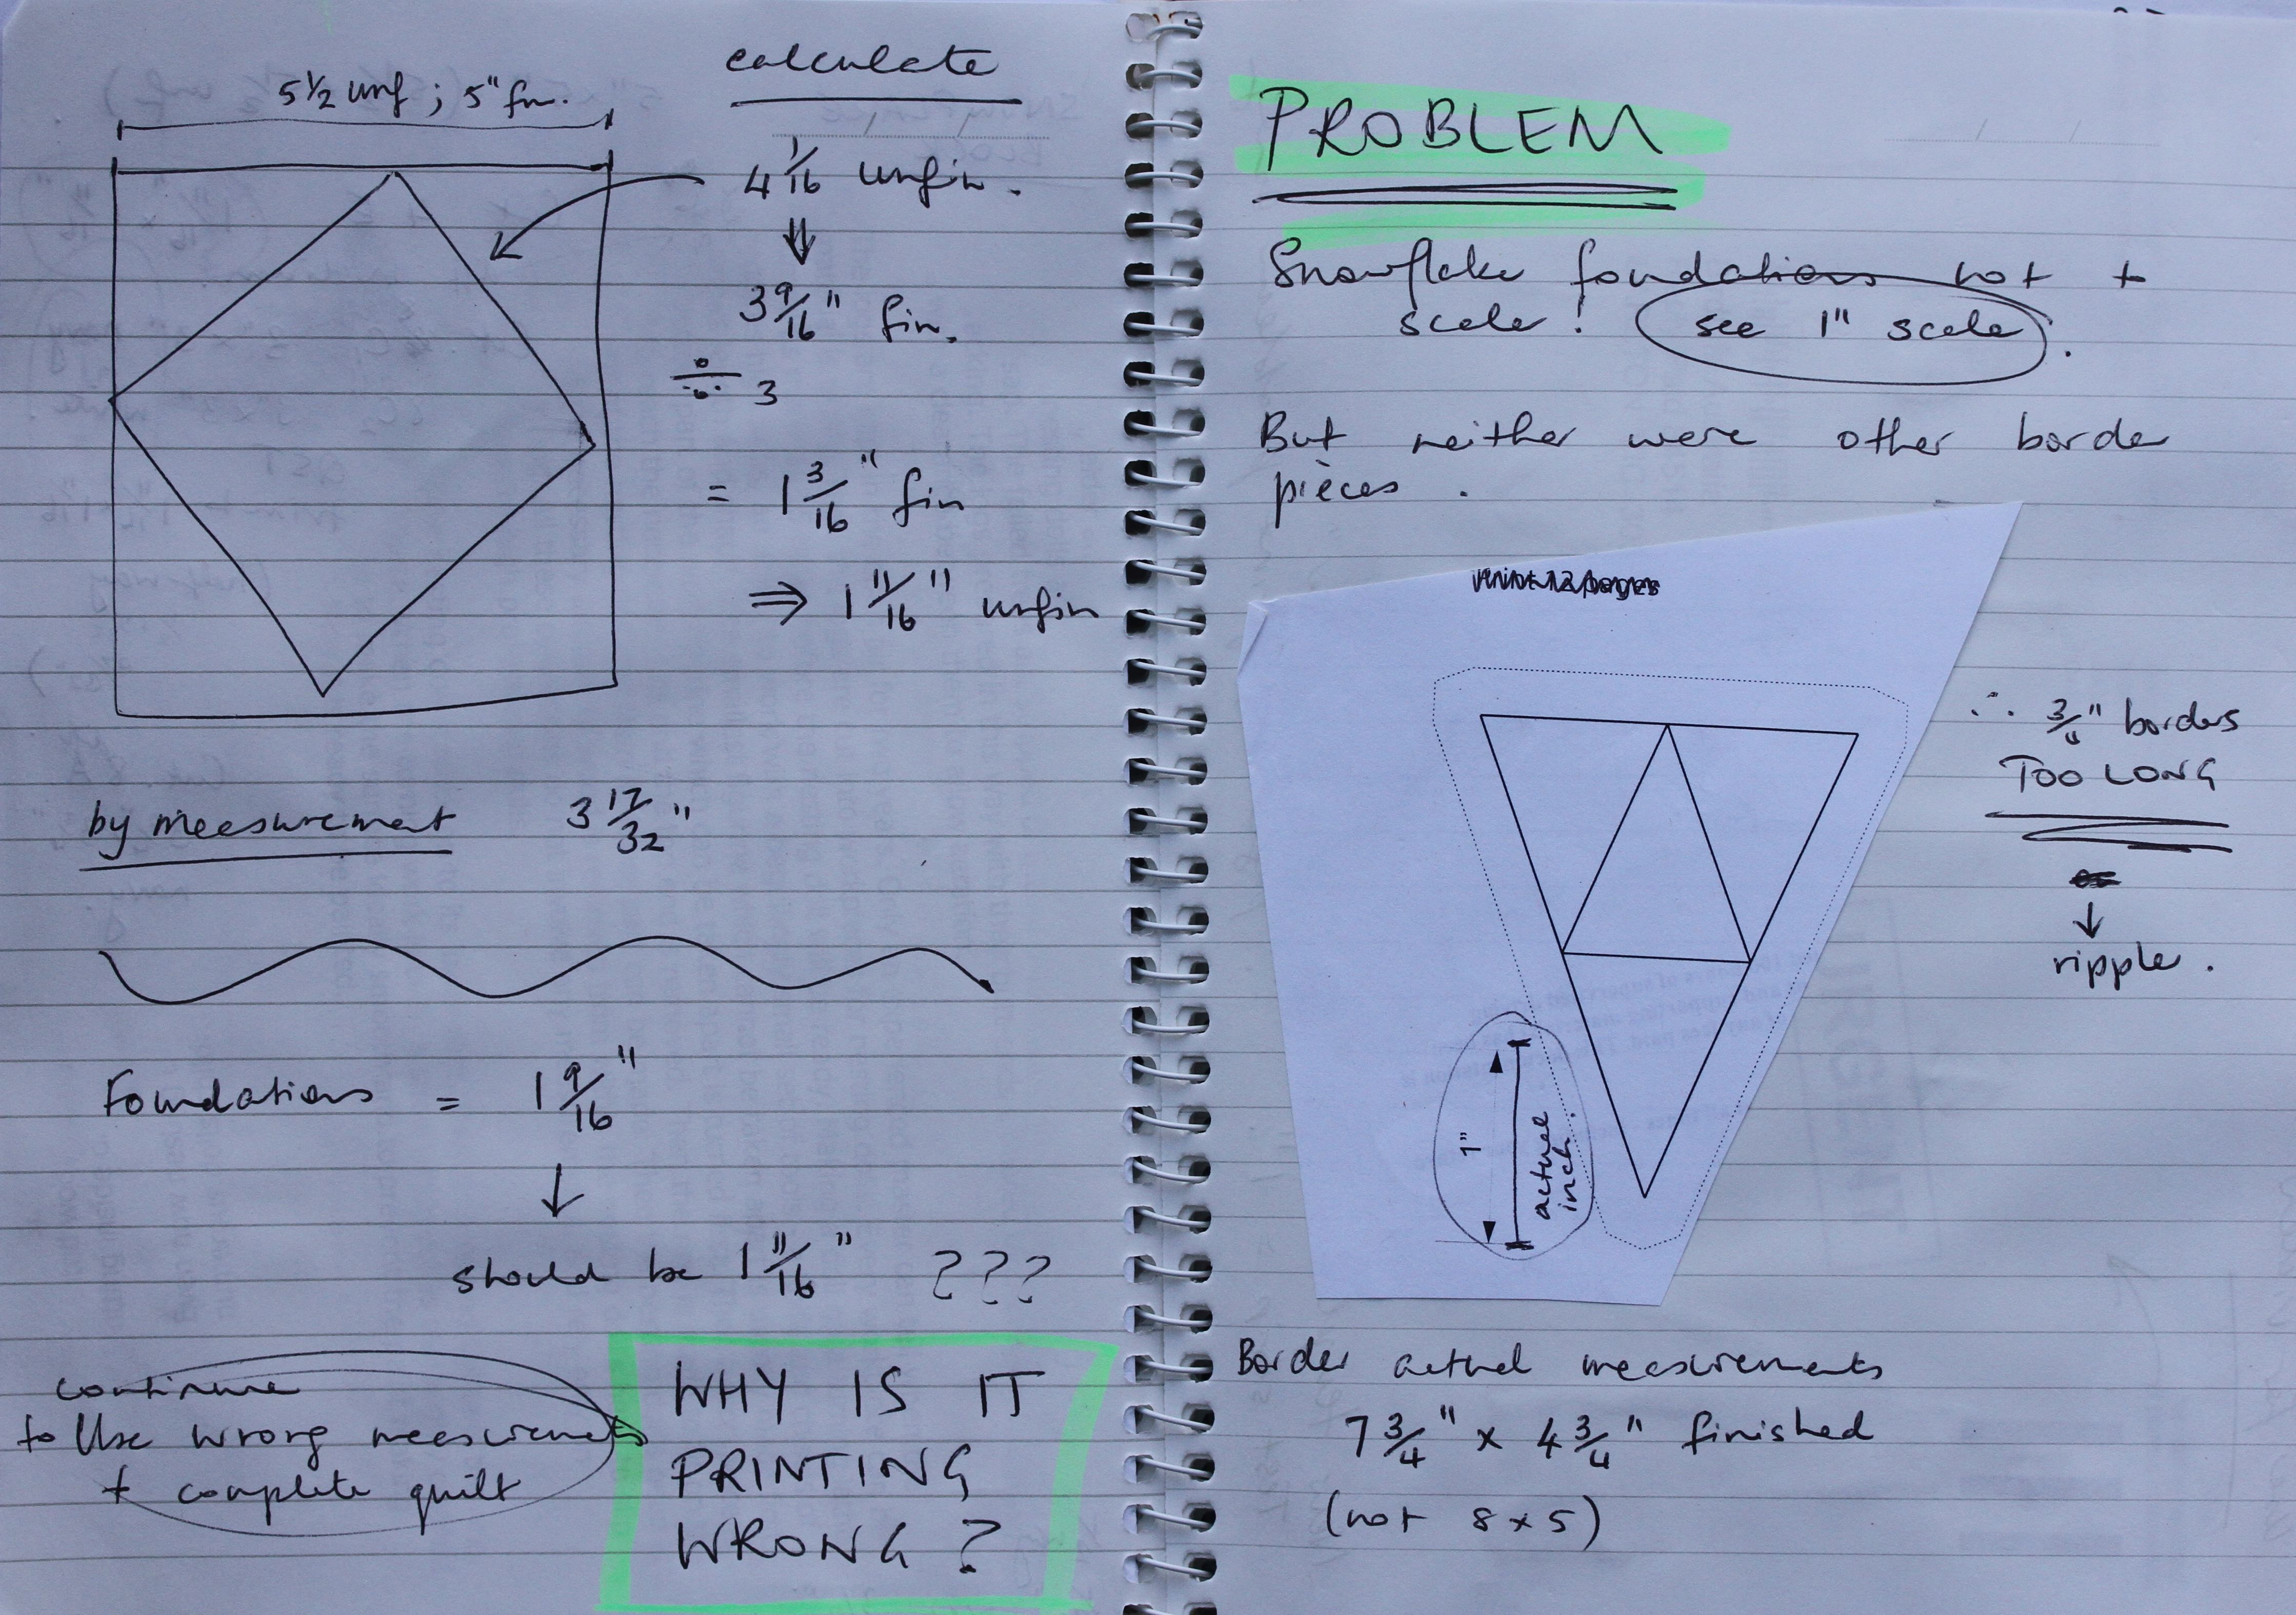 calculate
5 1/2 unf ; 5" fin.
4 1/16 unfin.
⇓
3 9/16" fin.
÷ 3
= 1 3/16" fin
⇒ 1 11/16" unfin
by measurement 3 17/32"
Foundations = 1 9/16"
↓
should be 1 11/16" ???
continue
to Use wrong measurements
+ complete quilt
WHY IS IT
PRINTING
WRONG ?
PROBLEM
Snowflake foundations not t
scale! see 1" scale.
But neither were other border
pièces.
1"
actual
inch.
∴ 3/4" borders
TOO LONG
↓
ripple.
Border actual measurements
7 3/4" x 4 3/4" finished
(not 8 x 5)